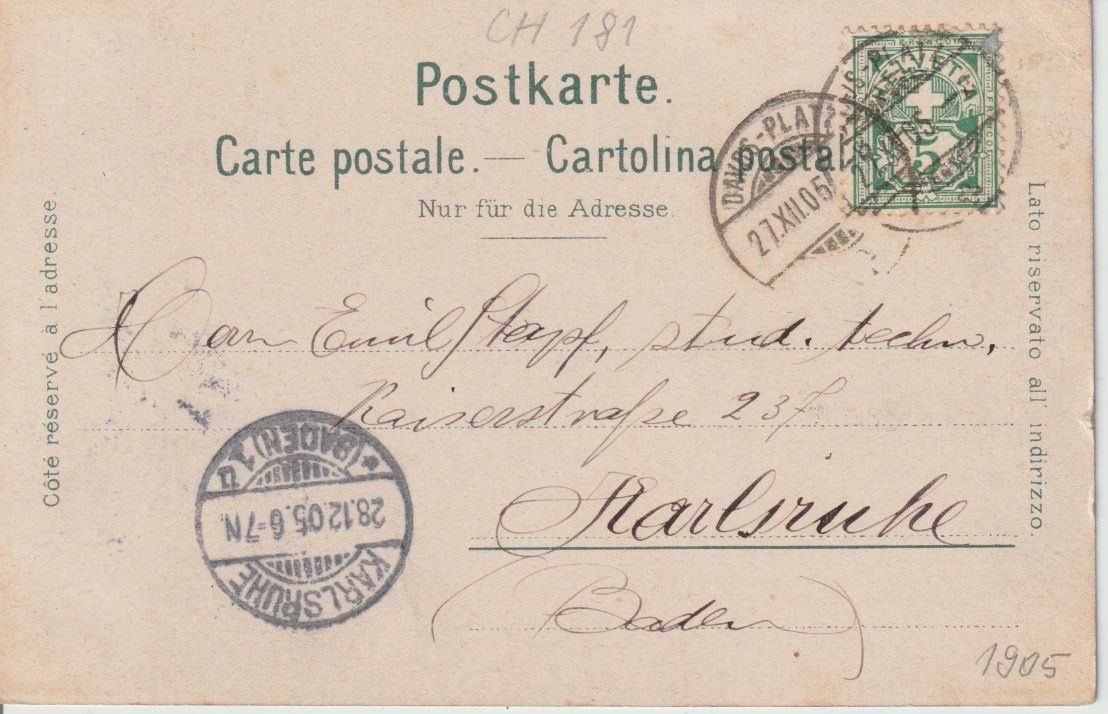 CH 181
Postkarte.
Carte postale. — Cartolina postale
Nur für die Adresse.
Côté réservé à l'adresse.
Lato riservato all' indirizzo.
HELVETIA
FRANCO
5
DAVOS-PLATZ
27.XII.05
Herrn Emil Stapf, stud. techn.
Kaiserstraße 237
Karlsruhe
(Baden)
KARLSRUHE
28.12.05.6-7N.
*(BADEN) 1u
1905